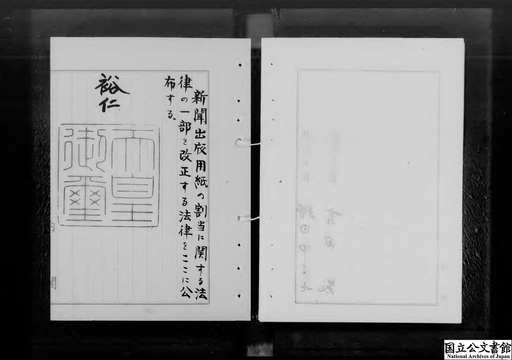 新聞出版用紙の割当に関する法
律の一部を改正する法律をここに公
布する。
裕仁
天皇
御璽
国立公文書館
National Archives of Japan